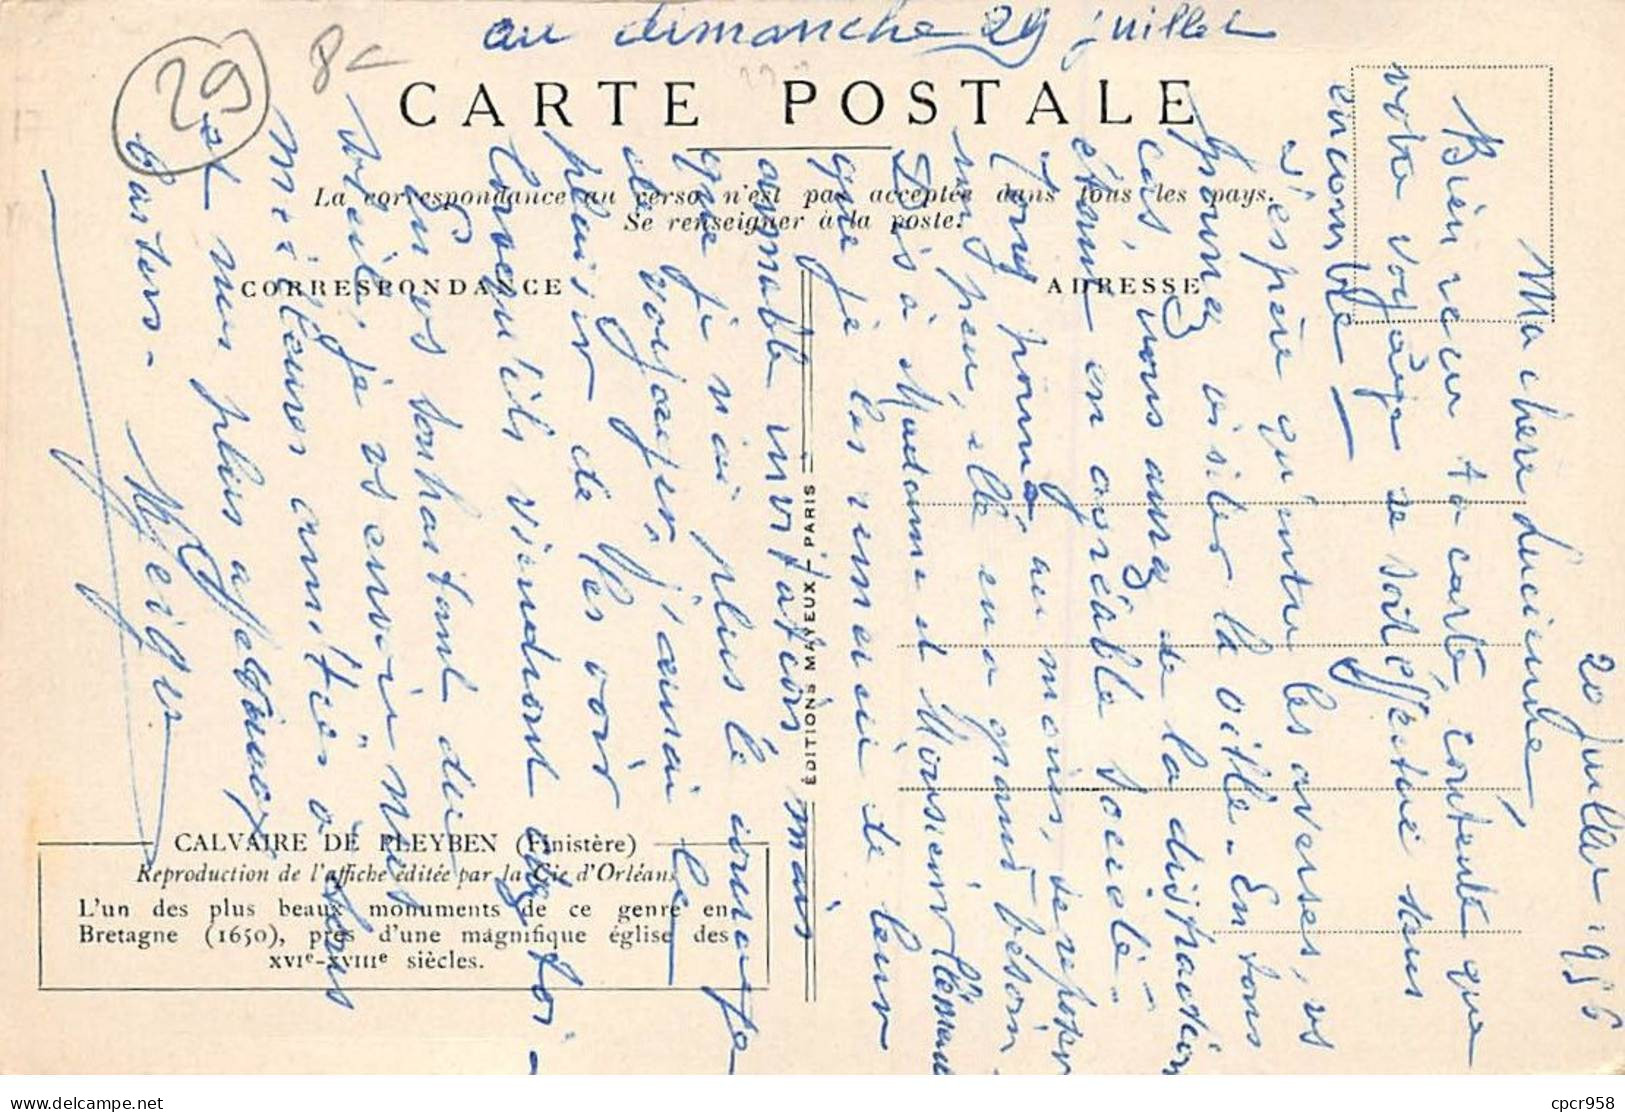 au dimanche 29 juillet
29
CARTE POSTALE
La correspondance au verso n'est pas acceptée dans tous les pays.
Se renseigner à la poste.
CORRESPONDANCE
ADRESSE
ÉDITIONS MAYEUX — PARIS
CALVAIRE DE PLEYBEN (Finistère)
Reproduction de l'affiche éditée par la Cie d'Orléans
L'un des plus beaux monuments de ce genre en
Bretagne (1650), près d'une magnifique église des
XVIe-XVIIIe siècles.
20 juillet 1956
Ma chère Lucienne
Bien reçu ta carte, contente que
votre voyage se soit effectué sans
encombre —
J'espère qu'entre les averses, vs
pourrez visiter la ville - En tous
cas, vous aurez de la distraction
étant en agréable société -
pourra, au moins, se reposer
un peu, elle en a grand besoin
Dis à Madame et Monsieur Clément
que je les remercie de leur
aimable invitation mais
que je n'ai plus le courage
de voyager, j'aurai le
plaisir de les voir
lorsqu'ils viendront chez toi -
En vs souhaitant du
soleil, je vs envoie nos
meilleures amitiés à tous
et nos plus affectueux
baisers -
cpcr958